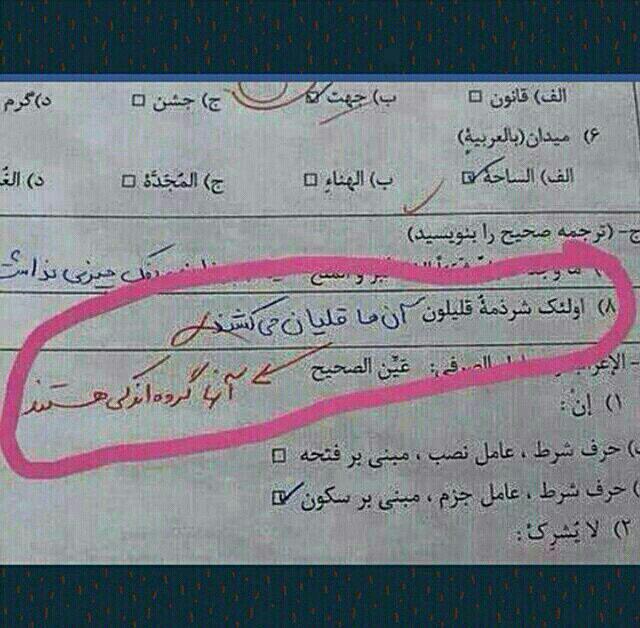 الف) قانون ☐ ب) جهت ☑ ج) جشن ☐ د) گرم
۶) میدان (بالعربیة)
الف) الساحة ☑ ب) الهناء ☐ ج) المُجَدَّة ☐ د)
ج- (ترجمه صحیح را بنویسید)
چیزی نداشت
۸) اولئک شرذمةٌ قلیلون آن ها قلیان می کشند
آنها گروه اندکی هستند
عیّن الصحیح
۱) إنْ:
) حرف شرط ، عامل نصب ، مبنی بر فتحه ☐
) حرف شرط ، عامل جزم ، مبنی بر سکون ☑
۲) لا یُشرِکْ: